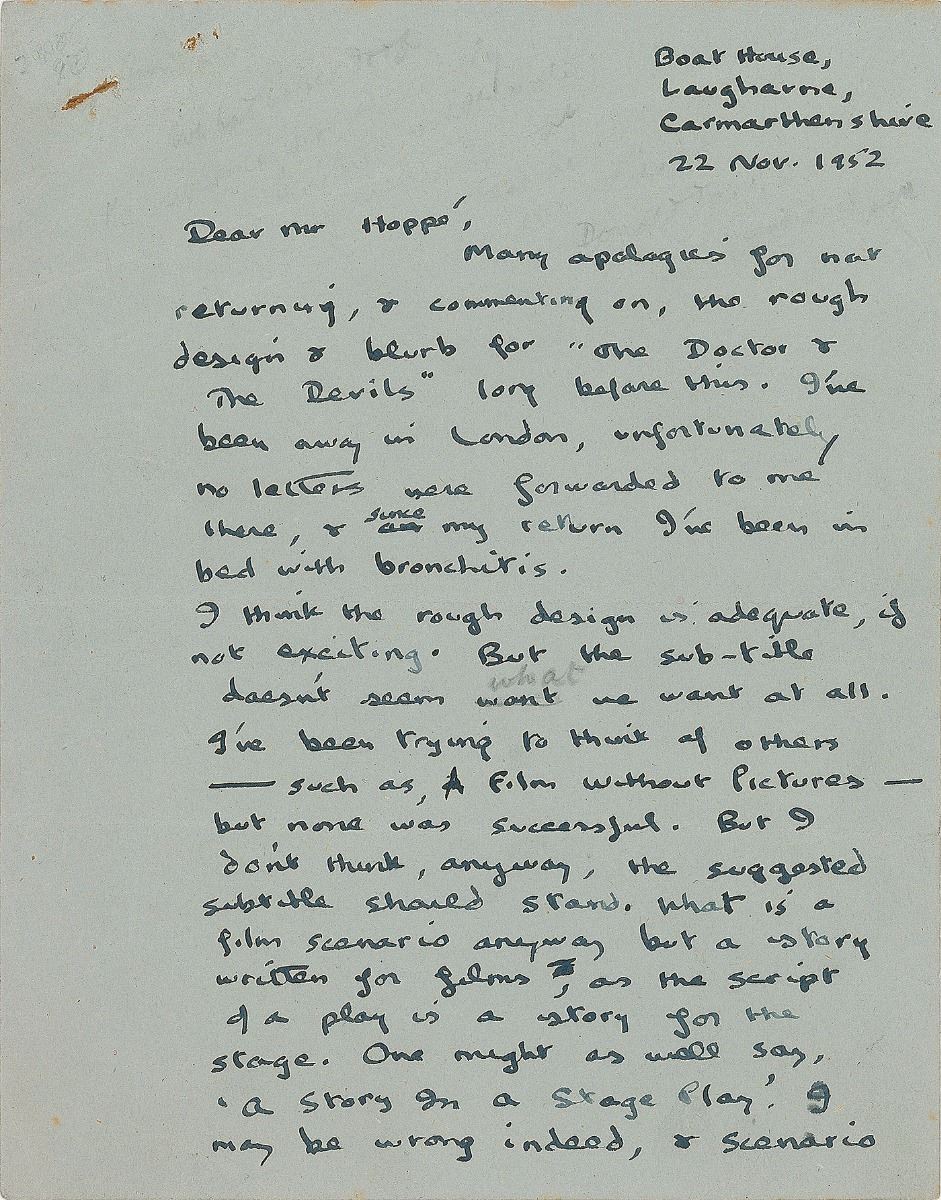 Boat House,
Laugharne,
Carmarthenshire
22 Nov. 1952
Dear Mr Hoppé,
Many apologies for not
returning, & commenting on, the rough
design & blurb for "The Doctor &
The Devils" long before this. I've
been away in London, unfortunately
no letters were forwarded to me
there, & since my return I've been in
bed with bronchitis.
I think the rough design is adequate, if
not exciting. But the sub-title
what
doesn't seem want we want at all.
I've been trying to think of others
— such as, A Film without Pictures —
but none was successful. But I
don't think, anyway, the suggested
subtitle should stand. What is a
film scenario anyway but a story
written for films, as the script
of a play is a story for the
stage. One might as well say,
'A Story In a Stage Play'. I
may be wrong indeed, & scenario